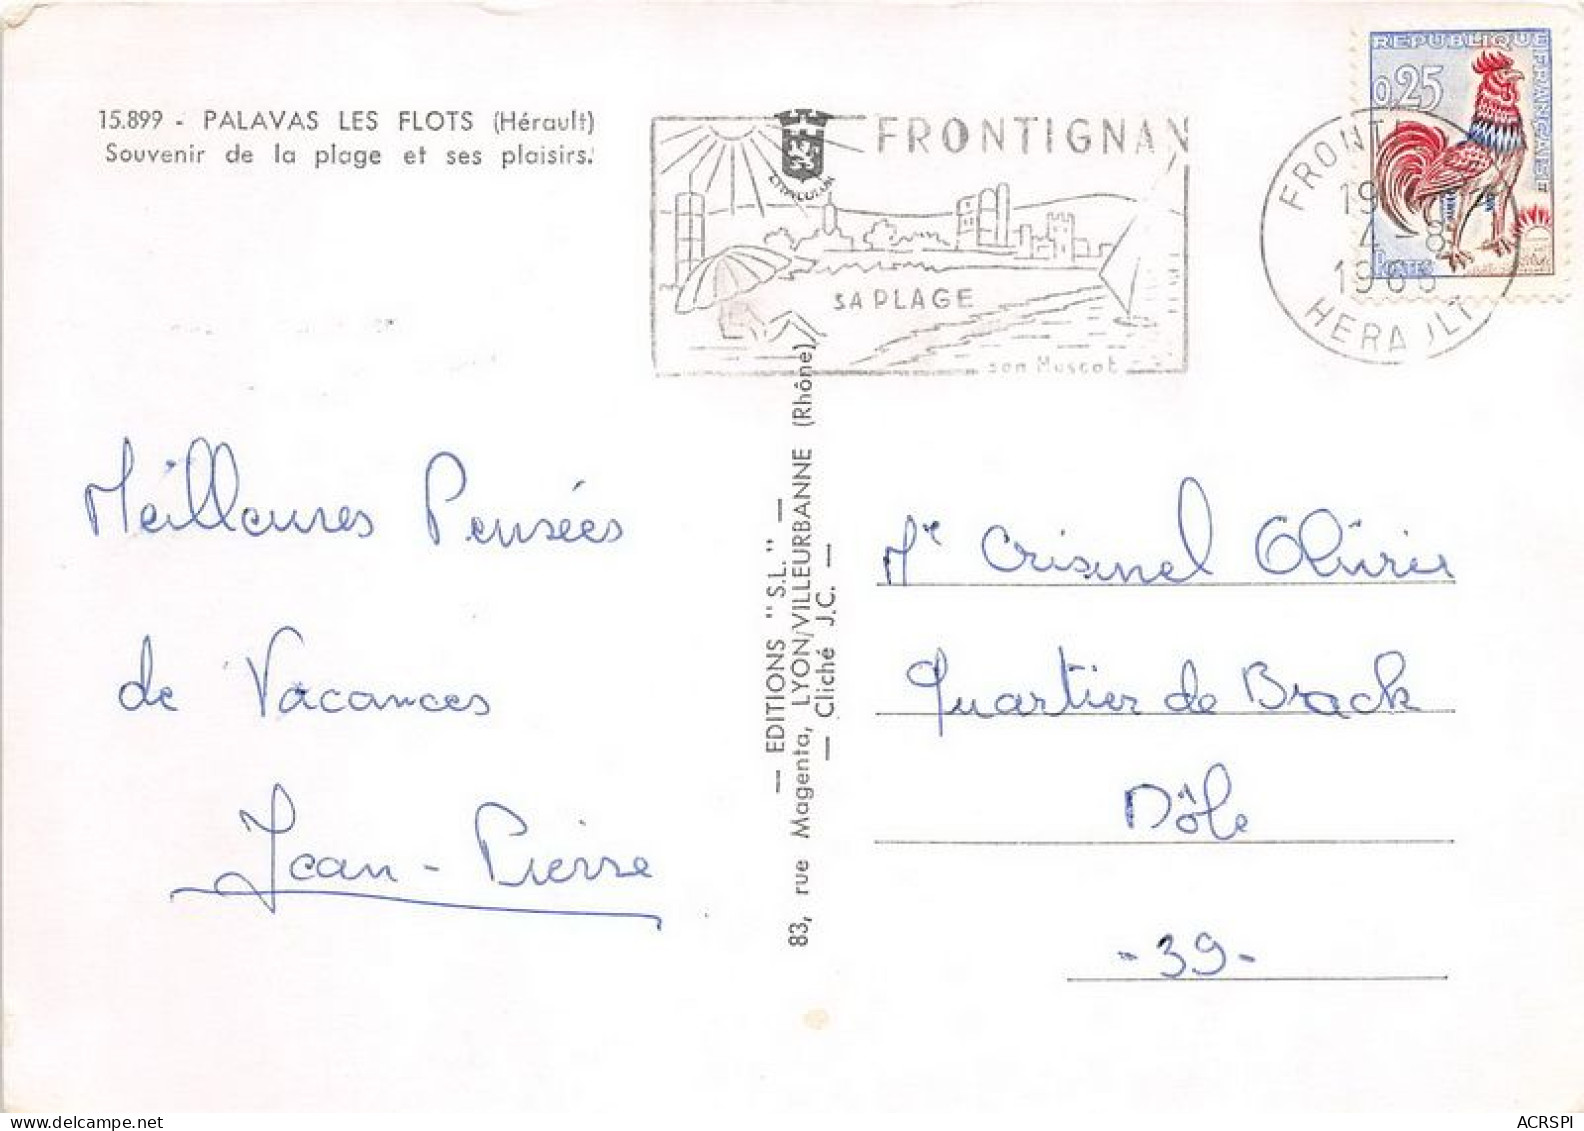 15.899 - PALAVAS LES FLOTS (Hérault)
Souvenir de la plage et ses plaisirs.
FRONTIGNAN
SA PLAGE
son Muscat
REPUBLIQUE FRANÇAISE
0,25
POSTES
FRONT
19
4 - 8
196
HERAULT
Meilleures Pensées
de Vacances
Jean-Pierre
— EDITIONS "S.L." —
83, rue Magenta, LYON/VILLEURBANNE (Rhône)
— Cliché J.C. —
Mr Crisinel Olivier
Quartier de Brack
Dôle
- 39 -
delcampe.net
ACRSPI